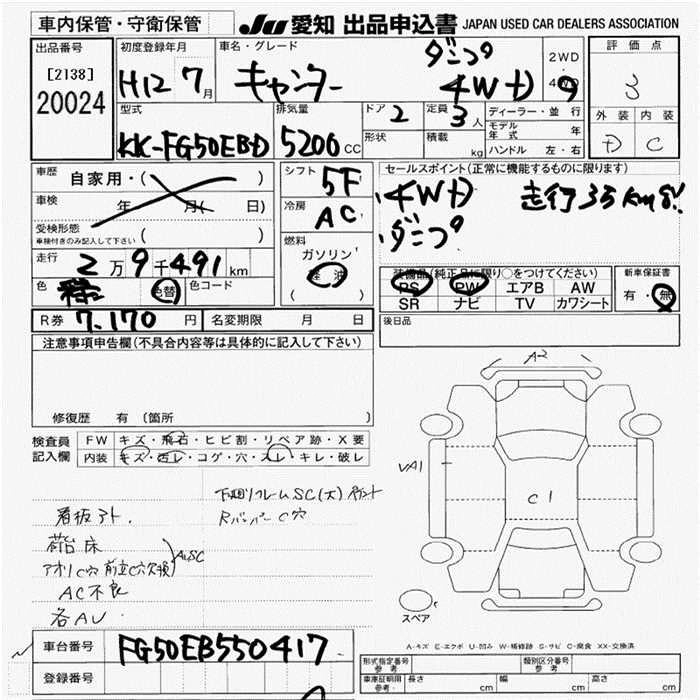 車内保管・守衛保管
JU 愛知 出品申込書 JAPAN USED CAR DEALERS ASSOCIATION
出品番号
[2138]
20024
初度登録年月
H12 7月
車名・グレード
キャンター
ダンプ
4WD
2WD・4WD
評価点
3
外装 内装
D C
型式
KK-FG50EBD
排気量
5200 CC
ドア
2
定員
3人
形状
積載
kg
ディーラー・並行
モデル年式 年
ハンドル 左・右
車歴 自家用・( )
車検 年 月( 日)
受検形態
車検付きのみ記入して下さい ( )
走行
2万9千491km
色
色替
色コード
シフト
5F
冷房
AC
燃料
ガソリン
軽油
( )
セールスポイント(正常に機能するものに限ります)
4WD
走行35km!!
ダンプ
装備品(純正品に限り○をつけてください)
PS PW エアB AW
SR ナビ TV カワシート
新車保証書
有・無
R券 7,170円
名変期限 月 日
後日品
注意事項申告欄(不具合内容等は具体的に記入して下さい)
修復歴 有 (箇所
検査員記入欄
FW キズ・飛石・ヒビ割・リペア跡・X要
内装 キズ・汚レ・コゲ・穴・スレ・キレ・破レ
下回リフレームSC(大)ペイント
RバンパーC穴
看板アト.
荷台床
アオリC穴 前立C穴欠損
AUSC
AC不良
各AU
A2
VA1
C1
スペア
A-キズ E-エクボ U-凹み W-補修跡 S-サビ C-腐食 XX-交換済
車台番号 FG50EB550417
登録番号
形式指定番号 参考
類別区分番号 参考
車庫証明用 参考
長さ cm
幅 cm
高さ cm